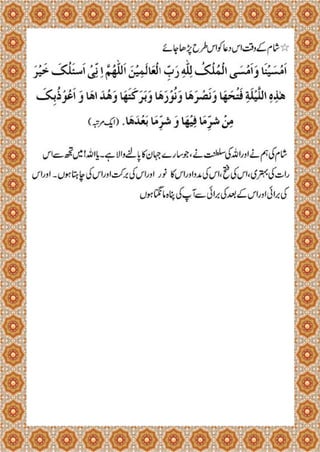 ☆ شام کے وقت اس دعا کو اس طرح پڑھا جائے
اَمْسَيْنَا وَاَمْسَى الْمُلْكُ لِلّٰهِ رَبِّ الْعَالَمِيْنَ اَللّٰهُمَّ اِنِّىْ اَسْئَلُكَ خَيْرَ
هٰذِهِ اللَّيْلَةِ فَتْحَهَا وَنَصْرَهَا وَنُوْرَهَا وَبَرَكَتَهَا وَهُدَاهَا وَ اَعُوْذُبِكَ
مِنْ شَرِّ مَا فِيْهَا وَ شَرِّ مَا بَعْدَهَا. (ایک مرتبہ)
شام کی ہم نے اور اللہ کی سلطنت نے، جو سارے جہان کا پالنے والا ہے۔ یا اللہ! میں تجھ سے اس
رات کی بہتری، اس کی فتح، اس کی مدد اور اس کا نور اور اس کی برکت اور اس کی ہدایت چاہتا ہوں۔ اور اس
کی برائی اور اس کے بعد کی برائی سے آپ کی پناہ مانگتا ہوں